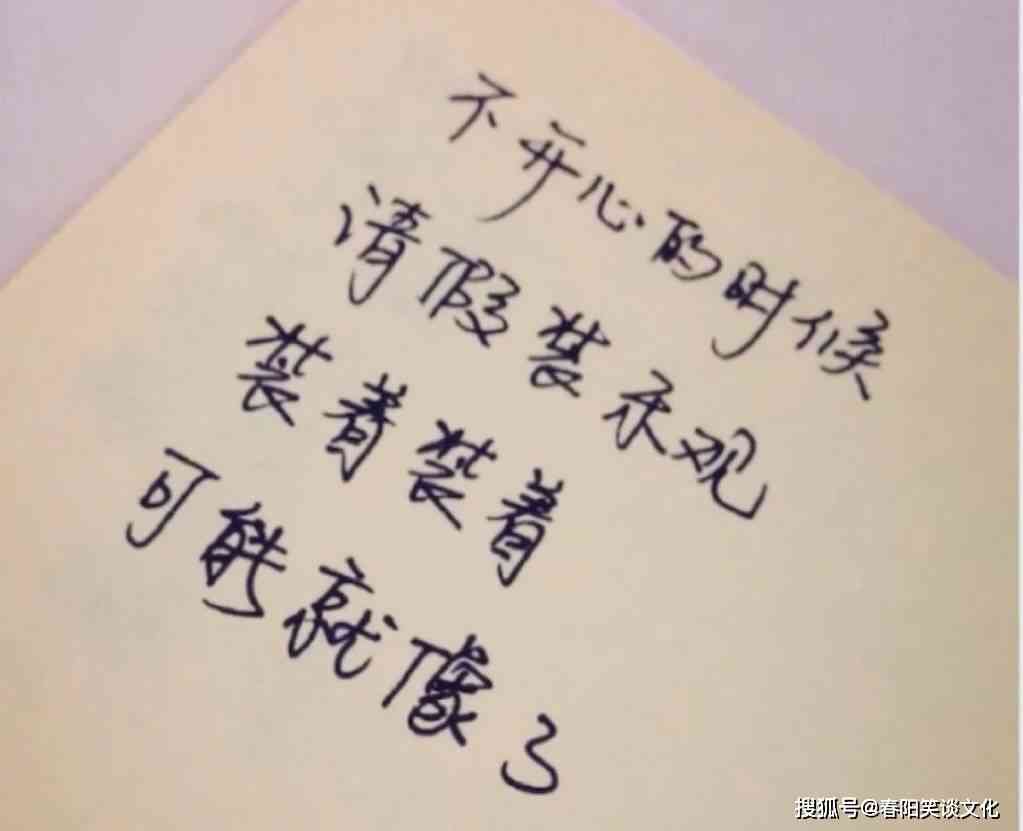 不开心的时候
请假装乐观
装着装着
可能就像了
搜狐号@春阳笑谈文化